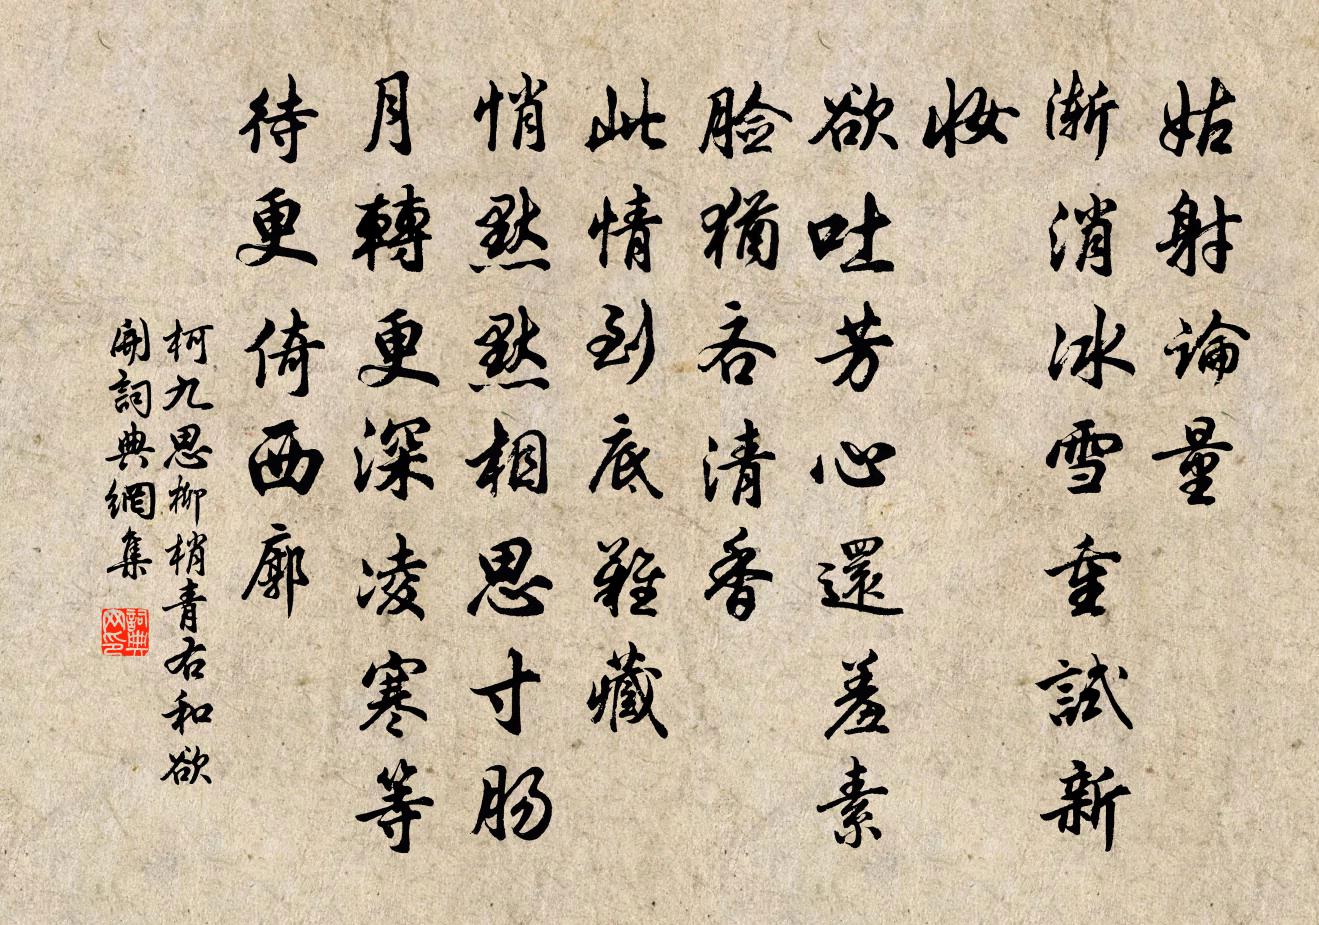 姑射論量
漸消冰雪重試新
妝
欲吐芳心還羞素
脸猶吝清香
此情到底難藏
悄默默相思寸肠
月轉更深凌寒等
待更倚西廓
柯九思柳梢青右和欲
開詞典網集
詞典
网印